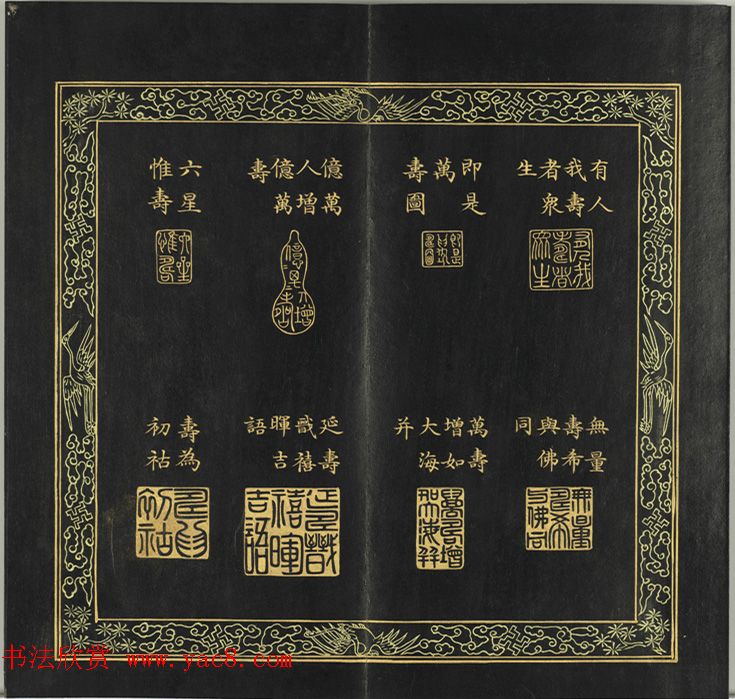 有人
我壽
者衆
生
即是
萬
壽圖
億萬
人增
億萬
壽
六星
惟壽
無量
壽希
與佛
同
萬壽
增如
大海
并
延壽
戩禧
暉吉
語
壽為
初祜
书法欣赏 www.yac8.com